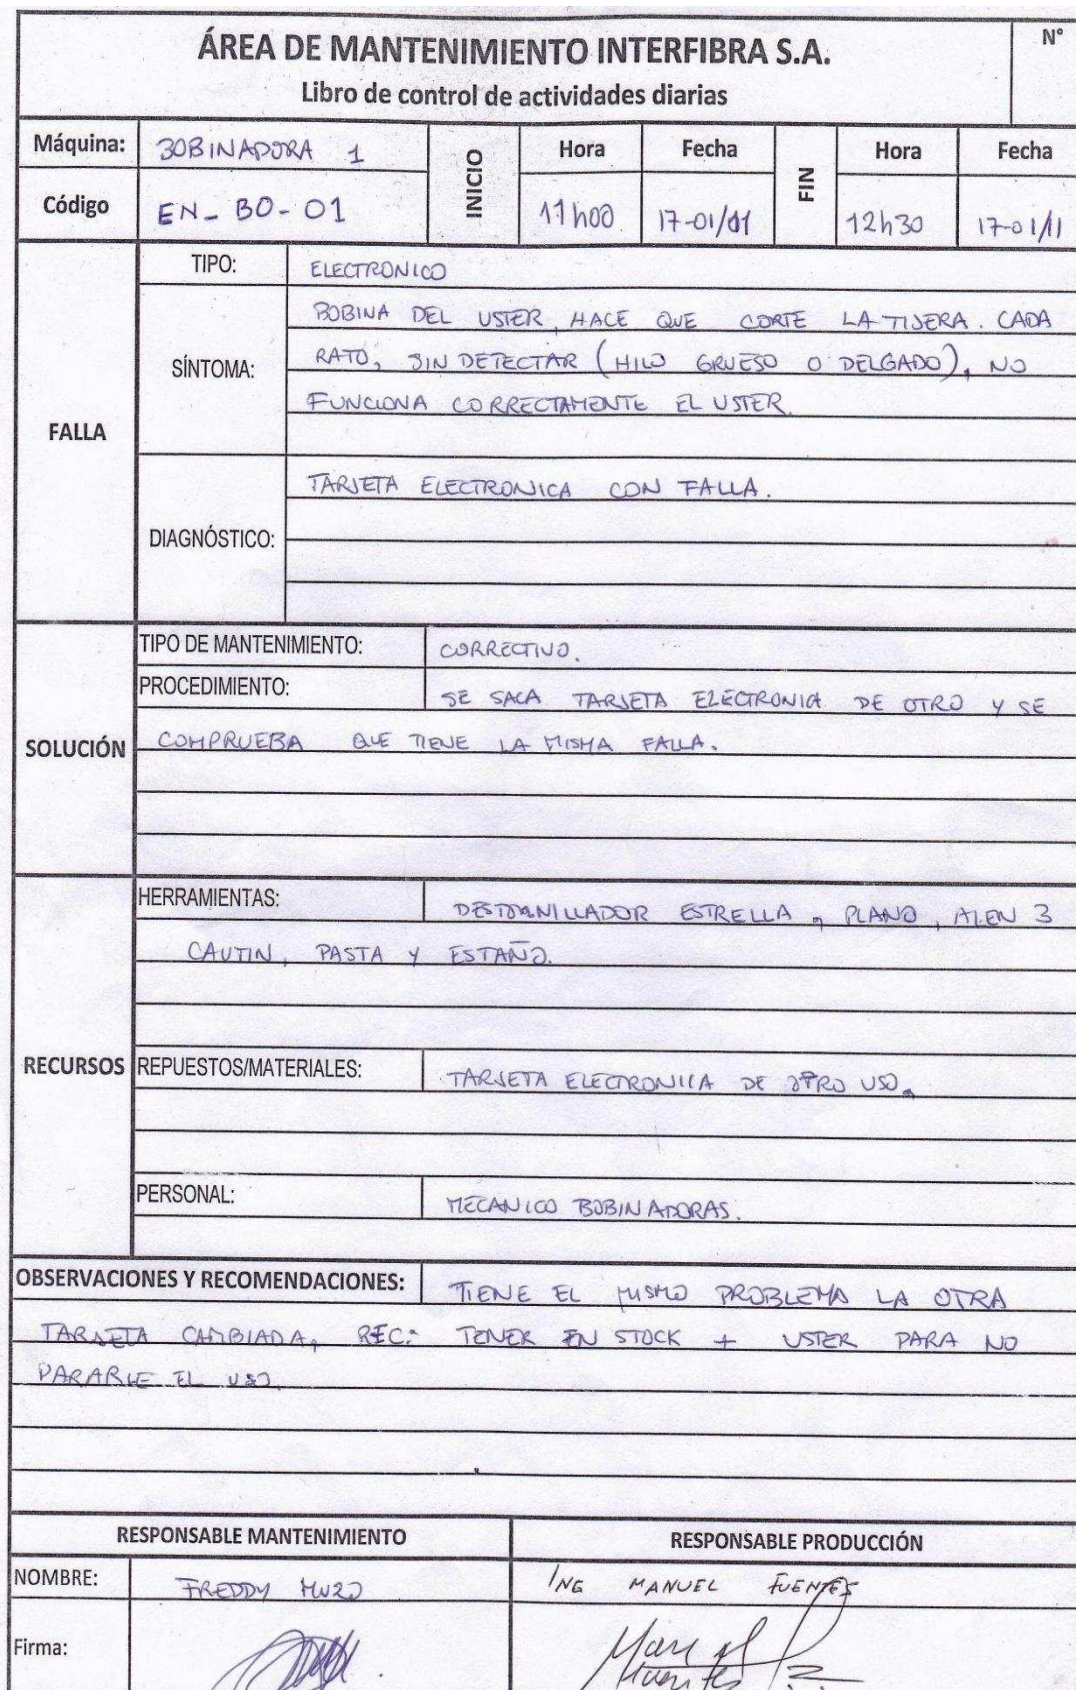 ÁREA DE MANTENIMIENTO INTERFIBRA S.A.
N°
Libro de control de actividades diarias
Máquina: BOBINADORA 1
INICIO
Hora Fecha
FIN
Hora Fecha
Código EN-BO-01
11h00 17-01/11
12h30 17-01/11
FALLA
TIPO: ELECTRONICO
SÍNTOMA:
BOBINA DEL USTER, HACE QUE CORTE LA TIJERA. CADA
RATO, SIN DETECTAR (HILO GRUESO O DELGADO), NO
FUNCIONA CORRECTAMENTE EL USTER.
DIAGNÓSTICO:
TARJETA ELECTRONICA CON FALLA.
SOLUCIÓN
TIPO DE MANTENIMIENTO: CORRECTIVO.
PROCEDIMIENTO: SE SACA TARJETA ELECTRONICA DE OTRO Y SE
COMPRUEBA QUE TIENE LA MISMA FALLA.
RECURSOS
HERRAMIENTAS: DESTORNILLADOR ESTRELLA, PLANO, ALEN 3
CAUTIN, PASTA Y ESTAÑO.
REPUESTOS/MATERIALES: TARJETA ELECTRONICA DE OTRO USO.
PERSONAL: MECANICO BOBINADORAS.
OBSERVACIONES Y RECOMENDACIONES: TIENE EL MISMO PROBLEMA LA OTRA
TARJETA CAMBIADA, REC: TENER EN STOCK + USTER PARA NO
PARARLE EL USO.
RESPONSABLE MANTENIMIENTO
RESPONSABLE PRODUCCIÓN
NOMBRE: FREDDY
ING MANUEL FUENTES
Firma:
Manuel
Fuentes